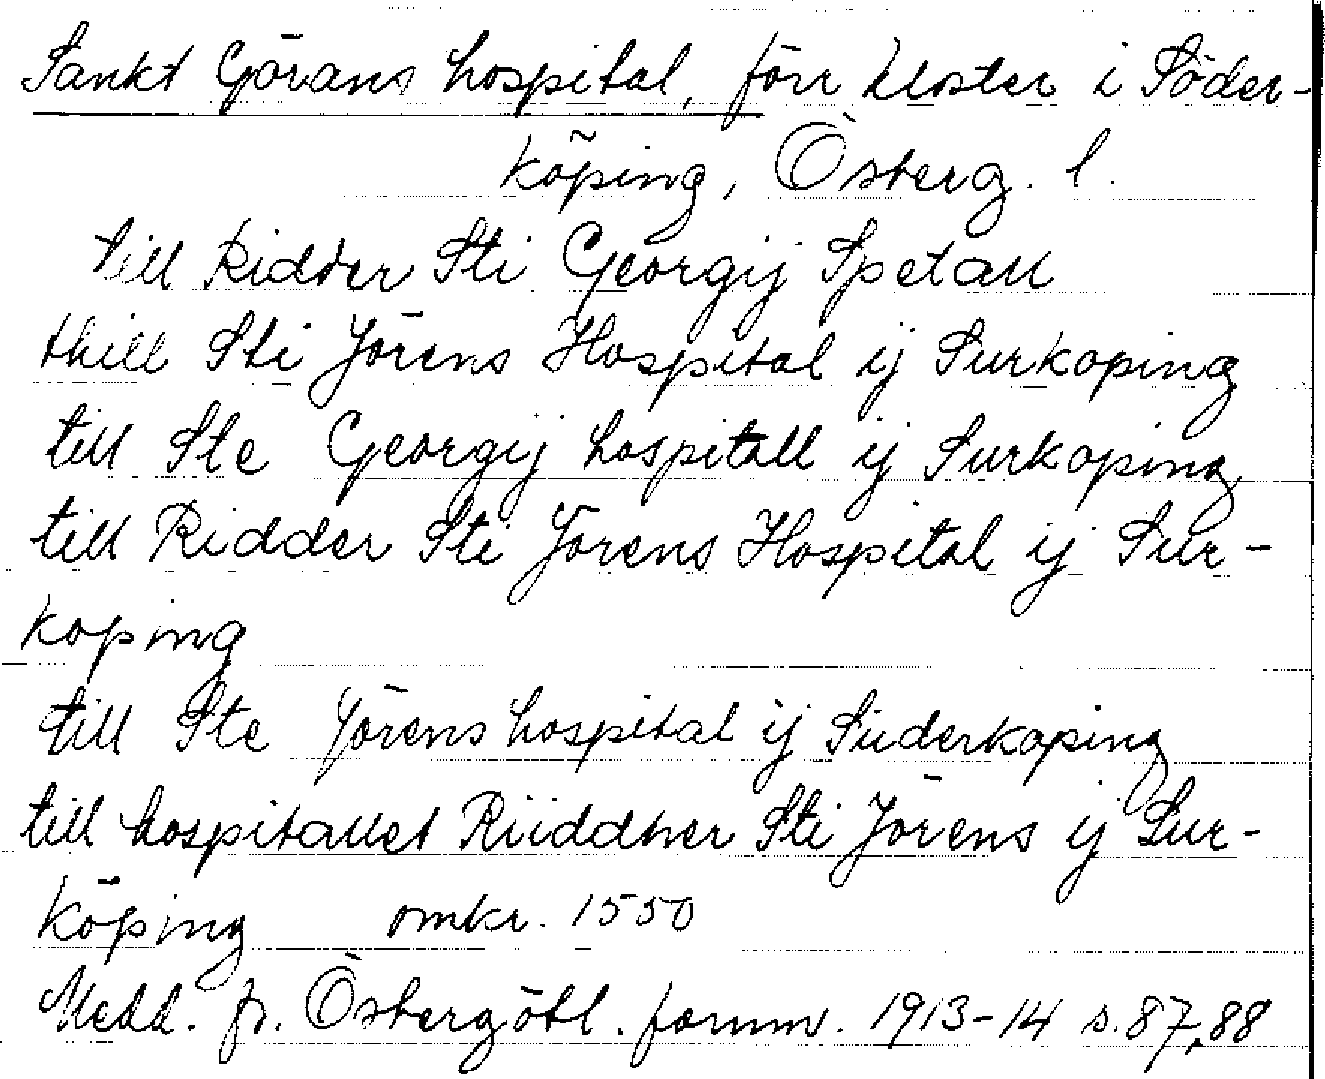 Sankt Görans hospital, förr kloster i Söder-
köping, Österg. l.
till Ridder Sti Georgij Spetall
thill Sti Jörens Hospital ij Surkoping
till Ste Georgij hospitall ij Surkoping
till Ridder Sti Jörens Hospital ij Sur-
koping
till Ste Jörens hospital ij Suderkoping
till hospitallet Riiddher Sti Jörens ij Sur-
köping omkr. 1550
Medd. fr. Östergötl. fornm. 1913-14 s. 87, 88